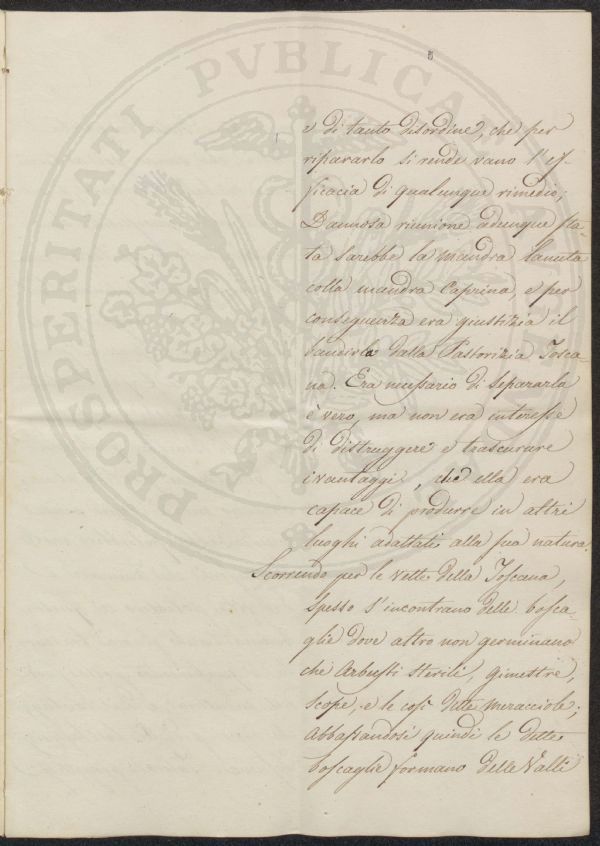 PROSPERITATI PVBLICAE
e di tanto disordine, che per
ripararlo si rende vano l'ef-
ficacia di qualunque rimedio;
Dannosa riunione adunque sta-
ta sarebbe la mandra lanuta
colla mandra Caprina, e per
conseguenza era giustizia il
bandirla dalla Pastorizia Tosca-
na. Era necessario di separarla
è vero, ma non era interesse
di distruggere e trascurare
i vantaggi, che ella era
capace di produrre in altri
luoghi adattati alla sua natura.
Scorrendo per le vette della Toscana,
spesso s'incontrano delle bosca-
glie dove altro non germinano
che Arbusti sterili, ginestre,
scope, e le così dette meracciole;
Abbassandosi quindi le dette
boscaglie formano delle Valli